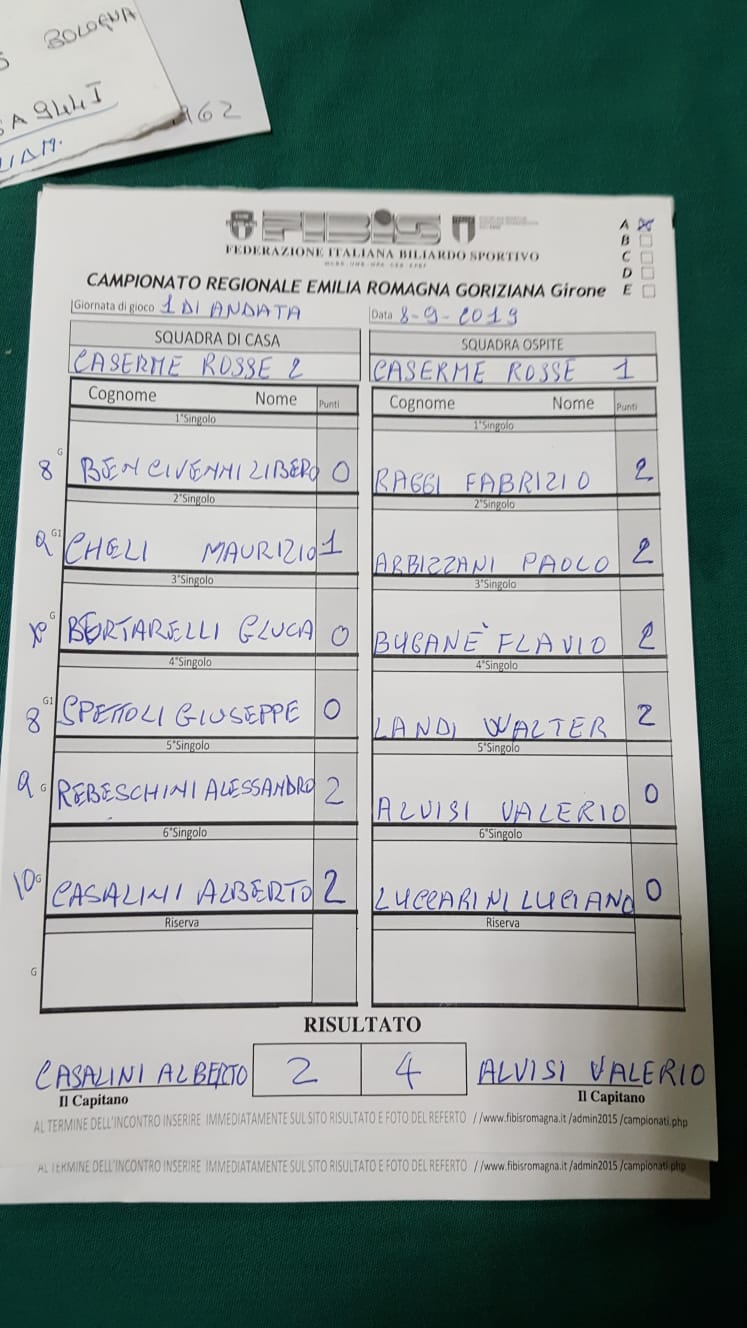 BOLOGNA
SA944I
962
FIBIS
FEDERAZIONE ITALIANA BILIARDO SPORTIVO
A
B
C
D
E
CAMPIONATO REGIONALE EMILIA ROMAGNA GORIZIANA Girone
Giornata di gioco 1 DI ANDATA Data 8-9-2019
SQUADRA DI CASA SQUADRA OSPITE
CASERME ROSSE 2 CASERME ROSSE 1
Cognome Nome Punti Cognome Nome Punti
1°Singolo 1°Singolo
8 G BENCIVENNI LIBERO 0 RAGGI FABRIZIO 2
2°Singolo 2°Singolo
9 G1 CHELI MAURIZIO 1 ARBIZZANI PAOLO 2
3°Singolo 3°Singolo
G BERTARELLI GLUCA 0 BUGANE` FLAVIO 2
4°Singolo 4°Singolo
8 G1 SPETTOLI GIUSEPPE 0 LANDI WALTER 2
5°Singolo 5°Singolo
9 G REBESCHINI ALESSANDRO 2 ALVISI VALERIO 0
6°Singolo 6°Singolo
10 G CASALINI ALBERTO 2 LUCCARINI LUCIANO 0
Riserva Riserva
G
RISULTATO
CASALINI ALBERTO 2 4 ALVISI VALERIO
Il Capitano Il Capitano
AL TERMINE DELL'INCONTRO INSERIRE IMMEDIATAMENTE SUL SITO RISULTATO E FOTO DEL REFERTO //www.fibisromagna.it /admin2015 /campionati.php
AL TERMINE DELL'INCONTRO INSERIRE IMMEDIATAMENTE SUL SITO RISULTATO E FOTO DEL REFERTO //www.fibisromagna.it /admin2015 /campionati.php